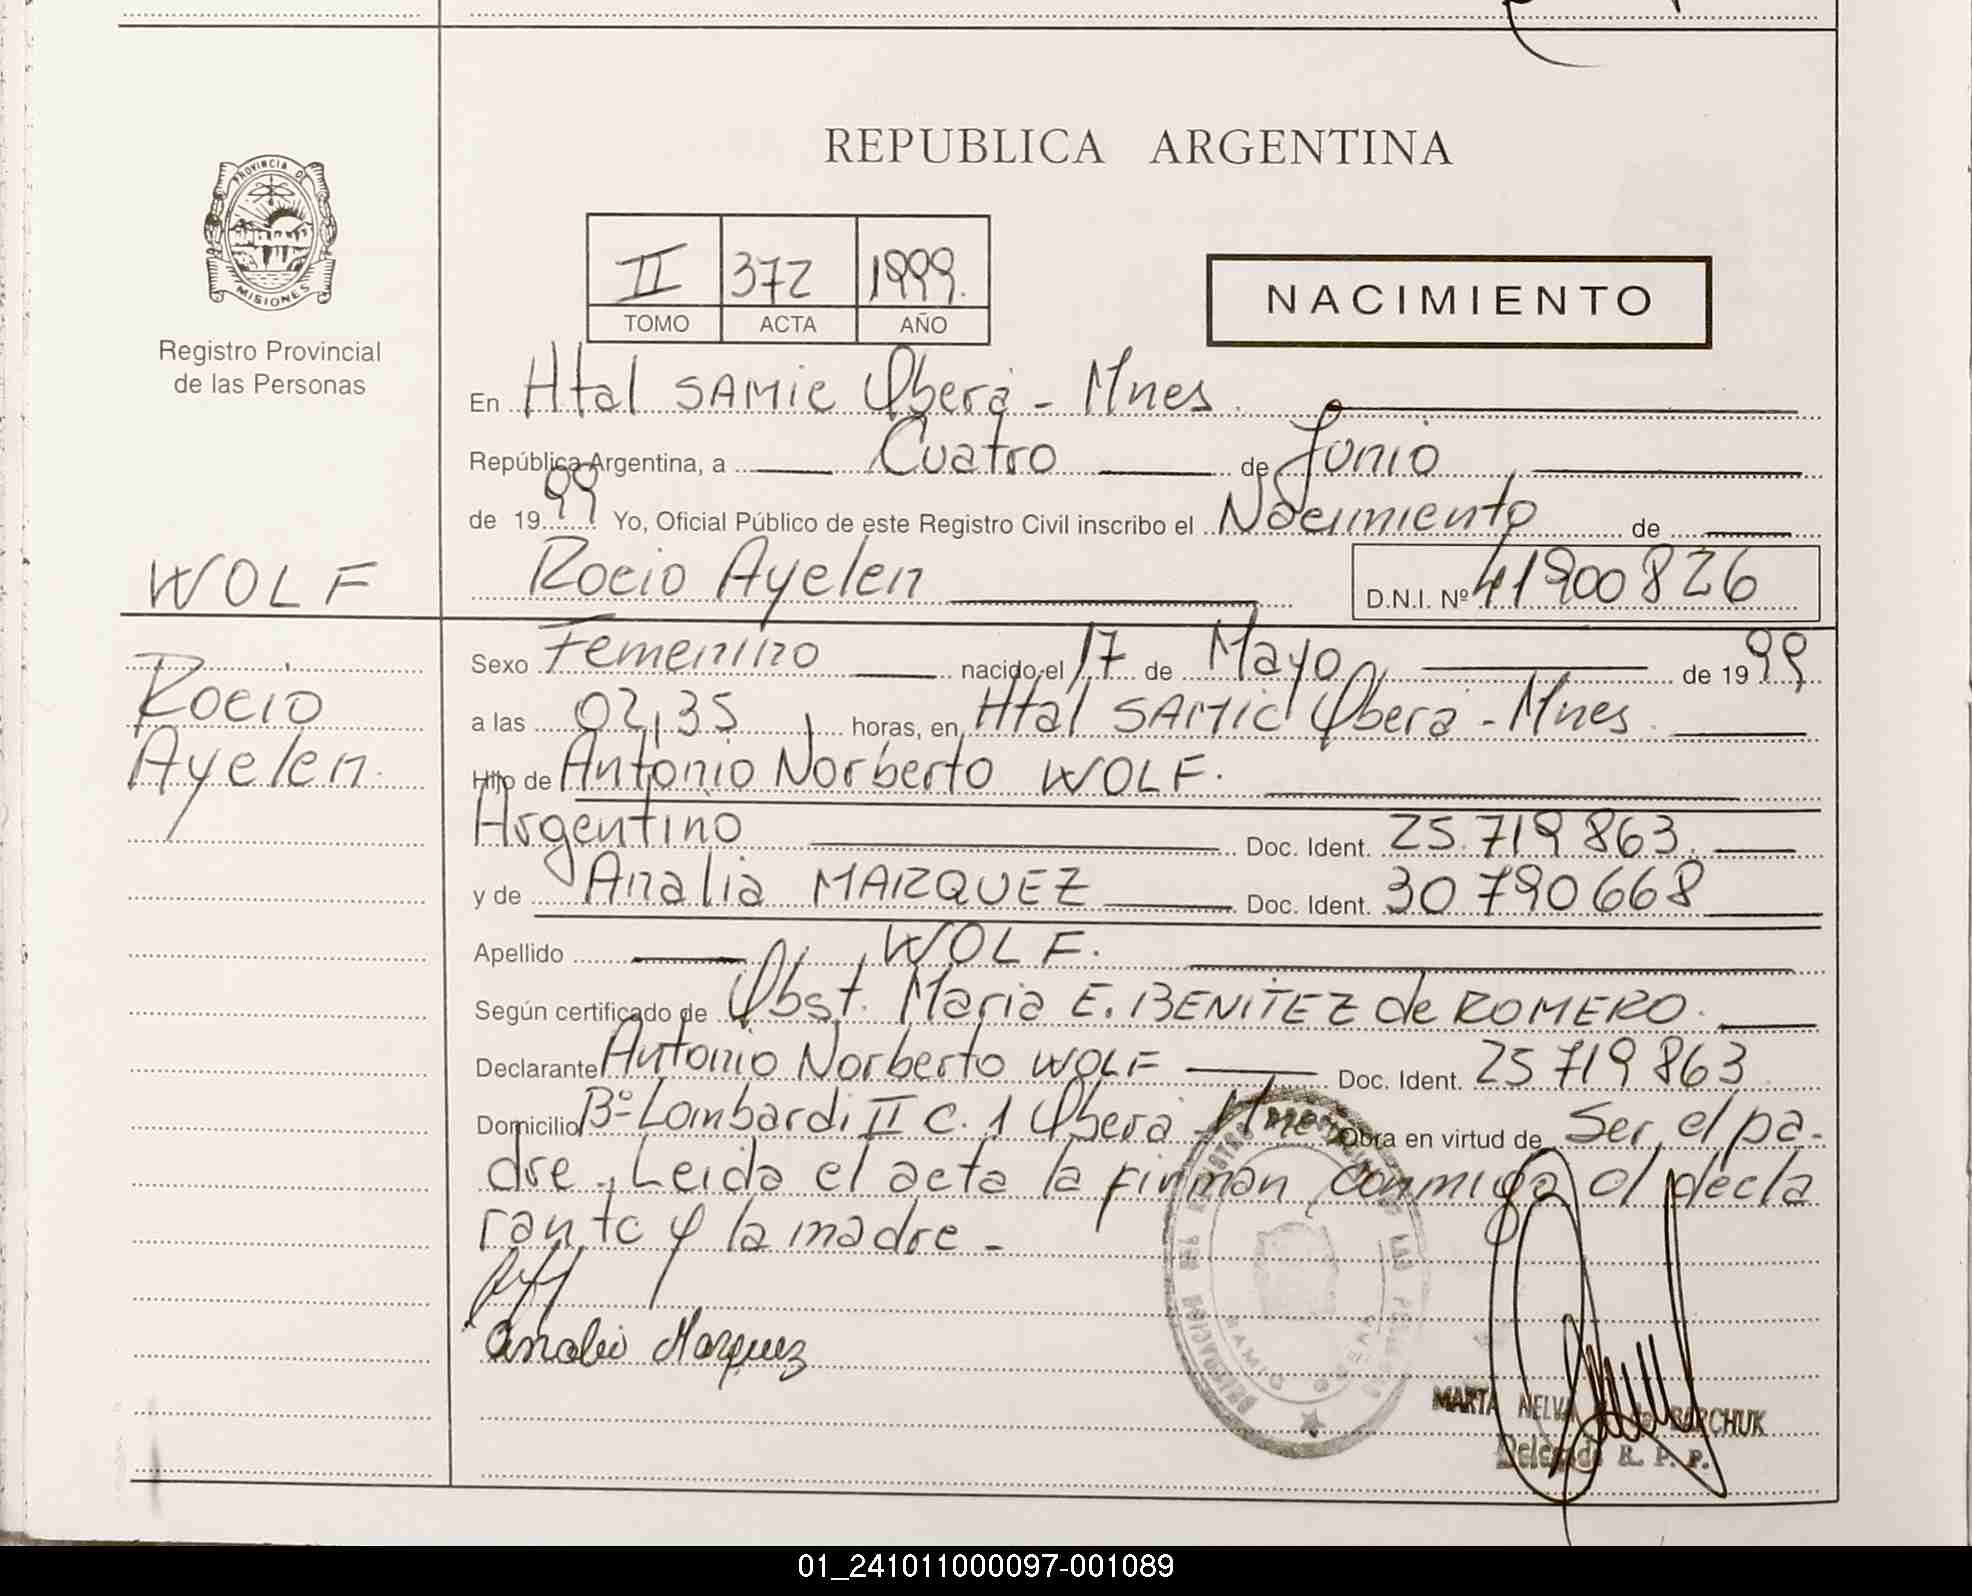 REPUBLICA ARGENTINA
PROVINCIA DE
MISIONES
Registro Provincial
de las Personas
II 372 1999.
TOMO ACTA AÑO
NACIMIENTO
En Htal SAMIC Oberá - Mnes.
República Argentina, a Cuatro de Junio
de 1999 Yo, Oficial Público de este Registro Civil inscribo el Nacimiento de
WOLF
Rocio Ayelen D.N.I. Nº 41900826
Rocio
Ayelen.
Sexo Femenino nacido el 17 de Mayo de 1999
a las 02,35 horas, en Htal SAMIC Oberá - Mnes.
Hijo de Antonio Norberto WOLF.
Argentino Doc. Ident. 25.719.863.
y de Analia MARQUEZ Doc. Ident. 30790668
Apellido WOLF.
Según certificado de Obst. Maria E. BENITEZ de ROMERO.
Declarante Antonio Norberto WOLF Doc. Ident. 25719863
Domicilio Bº Lombardi II C. 1 Oberá Mnes Obra en virtud de Ser el pa-
dre. Leida el acta la firman conmigo el decla
rante y la madre -
Analia Marquez
MARTA NELVA de BARCHUK
Delegada R. P. P.
01_241011000097-001089